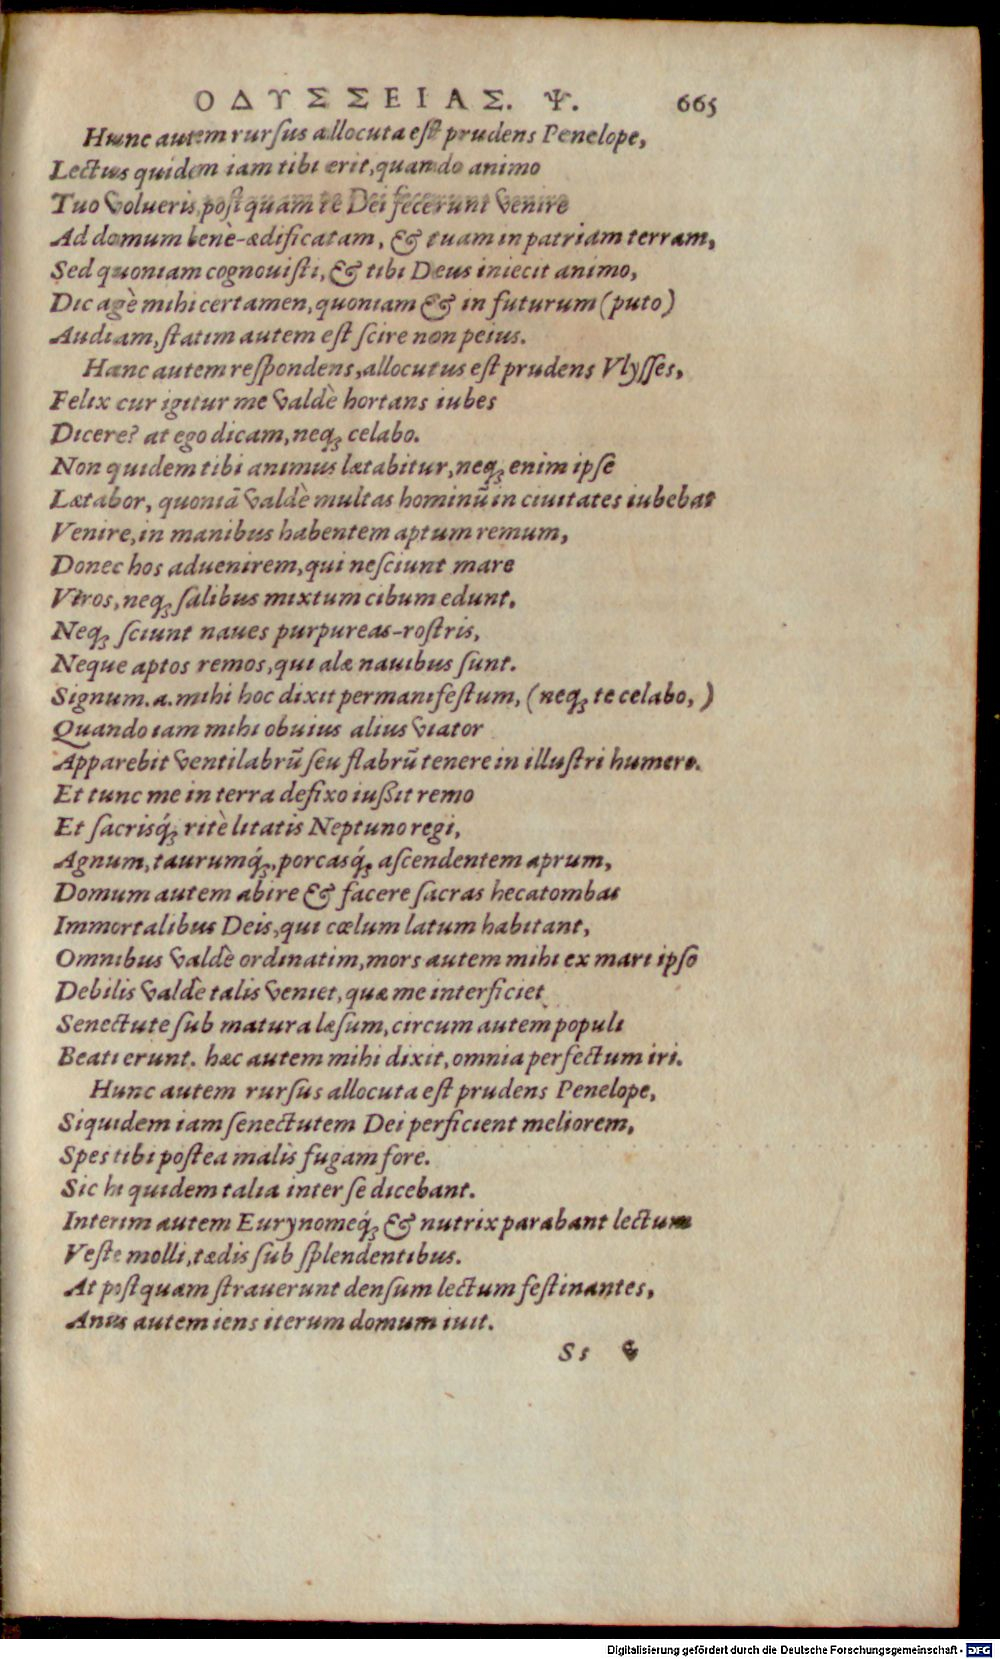 ΟΔΥΣΣΕΙΑΣ. Ψ. 665
Hunc autem rursus allocuta est prudens Penelope,
Lectus quidem iam tibi erit, quando animo
Tuo volueris, postquam te Dei fecerunt venire
Ad domum benè-ædificatam, & tuam in patriam terram,
Sed quoniam cognovisti, & tibi Deus iniecit animo,
Dic agè mihi certamen, quoniam & in futurum (puto)
Audiam, statim autem est scire non peius.
Hanc autem respondens, allocutus est prudens Vlysses,
Felix cur igitur me valdè hortans iubes
Dicere? at ego dicam, neq; celabo.
Non quidem tibi animus lætabitur, neq; enim ipse
Lætabor, quoniā valdè multas hominū in ciuitates iubebat
Venire, in manibus habentem aptum remum,
Donec hos aduenirem, qui nesciunt mare
Viros, neq; salibus mixtum cibum edunt.
Neq; sciunt naues purpureas-rostris,
Neque aptos remos, qui alæ nauibus sunt.
Signum .a. mihi hoc dixit permanifestum, (neq; te celabo, )
Quando iam mihi obuius alius viator
Apparebit ventilabrū seu flabrū tenere in illustri humero.
Et tunc me in terra defixo iußit remo
Et sacrisq́; ritè litatis Neptuno regi,
Agnum, taurumq́;, porcasq́; ascendentem aprum,
Domum autem abire & facere sacras hecatombas
Immortalibus Deis, qui cœlum latum habitant,
Omnibus valdè ordinatim, mors autem mihi ex mari ipso
Debilis valdè talis veniet, quæ me interficiet
Senectute sub matura læsum, circum autem populi
Beati erunt. hæc autem mihi dixit, omnia perfectum iri.
Hunc autem rursus allocuta est prudens Penelope,
Siquidem iam senectutem Dei perficient meliorem,
Spes tibi postea malis fugam fore.
Sic hi quidem talia inter se dicebant.
Interim autem Eurynomeq́; & nutrix parabant lectum
Veste molli, tædis sub splendentibus.
At postquam strauerunt densum lectum festinantes,
Anus autem iens iterum domum iuit.
Ss
Digitalisierung gefördert durch die Deutsche Forschungsgemeinschaft - DFG